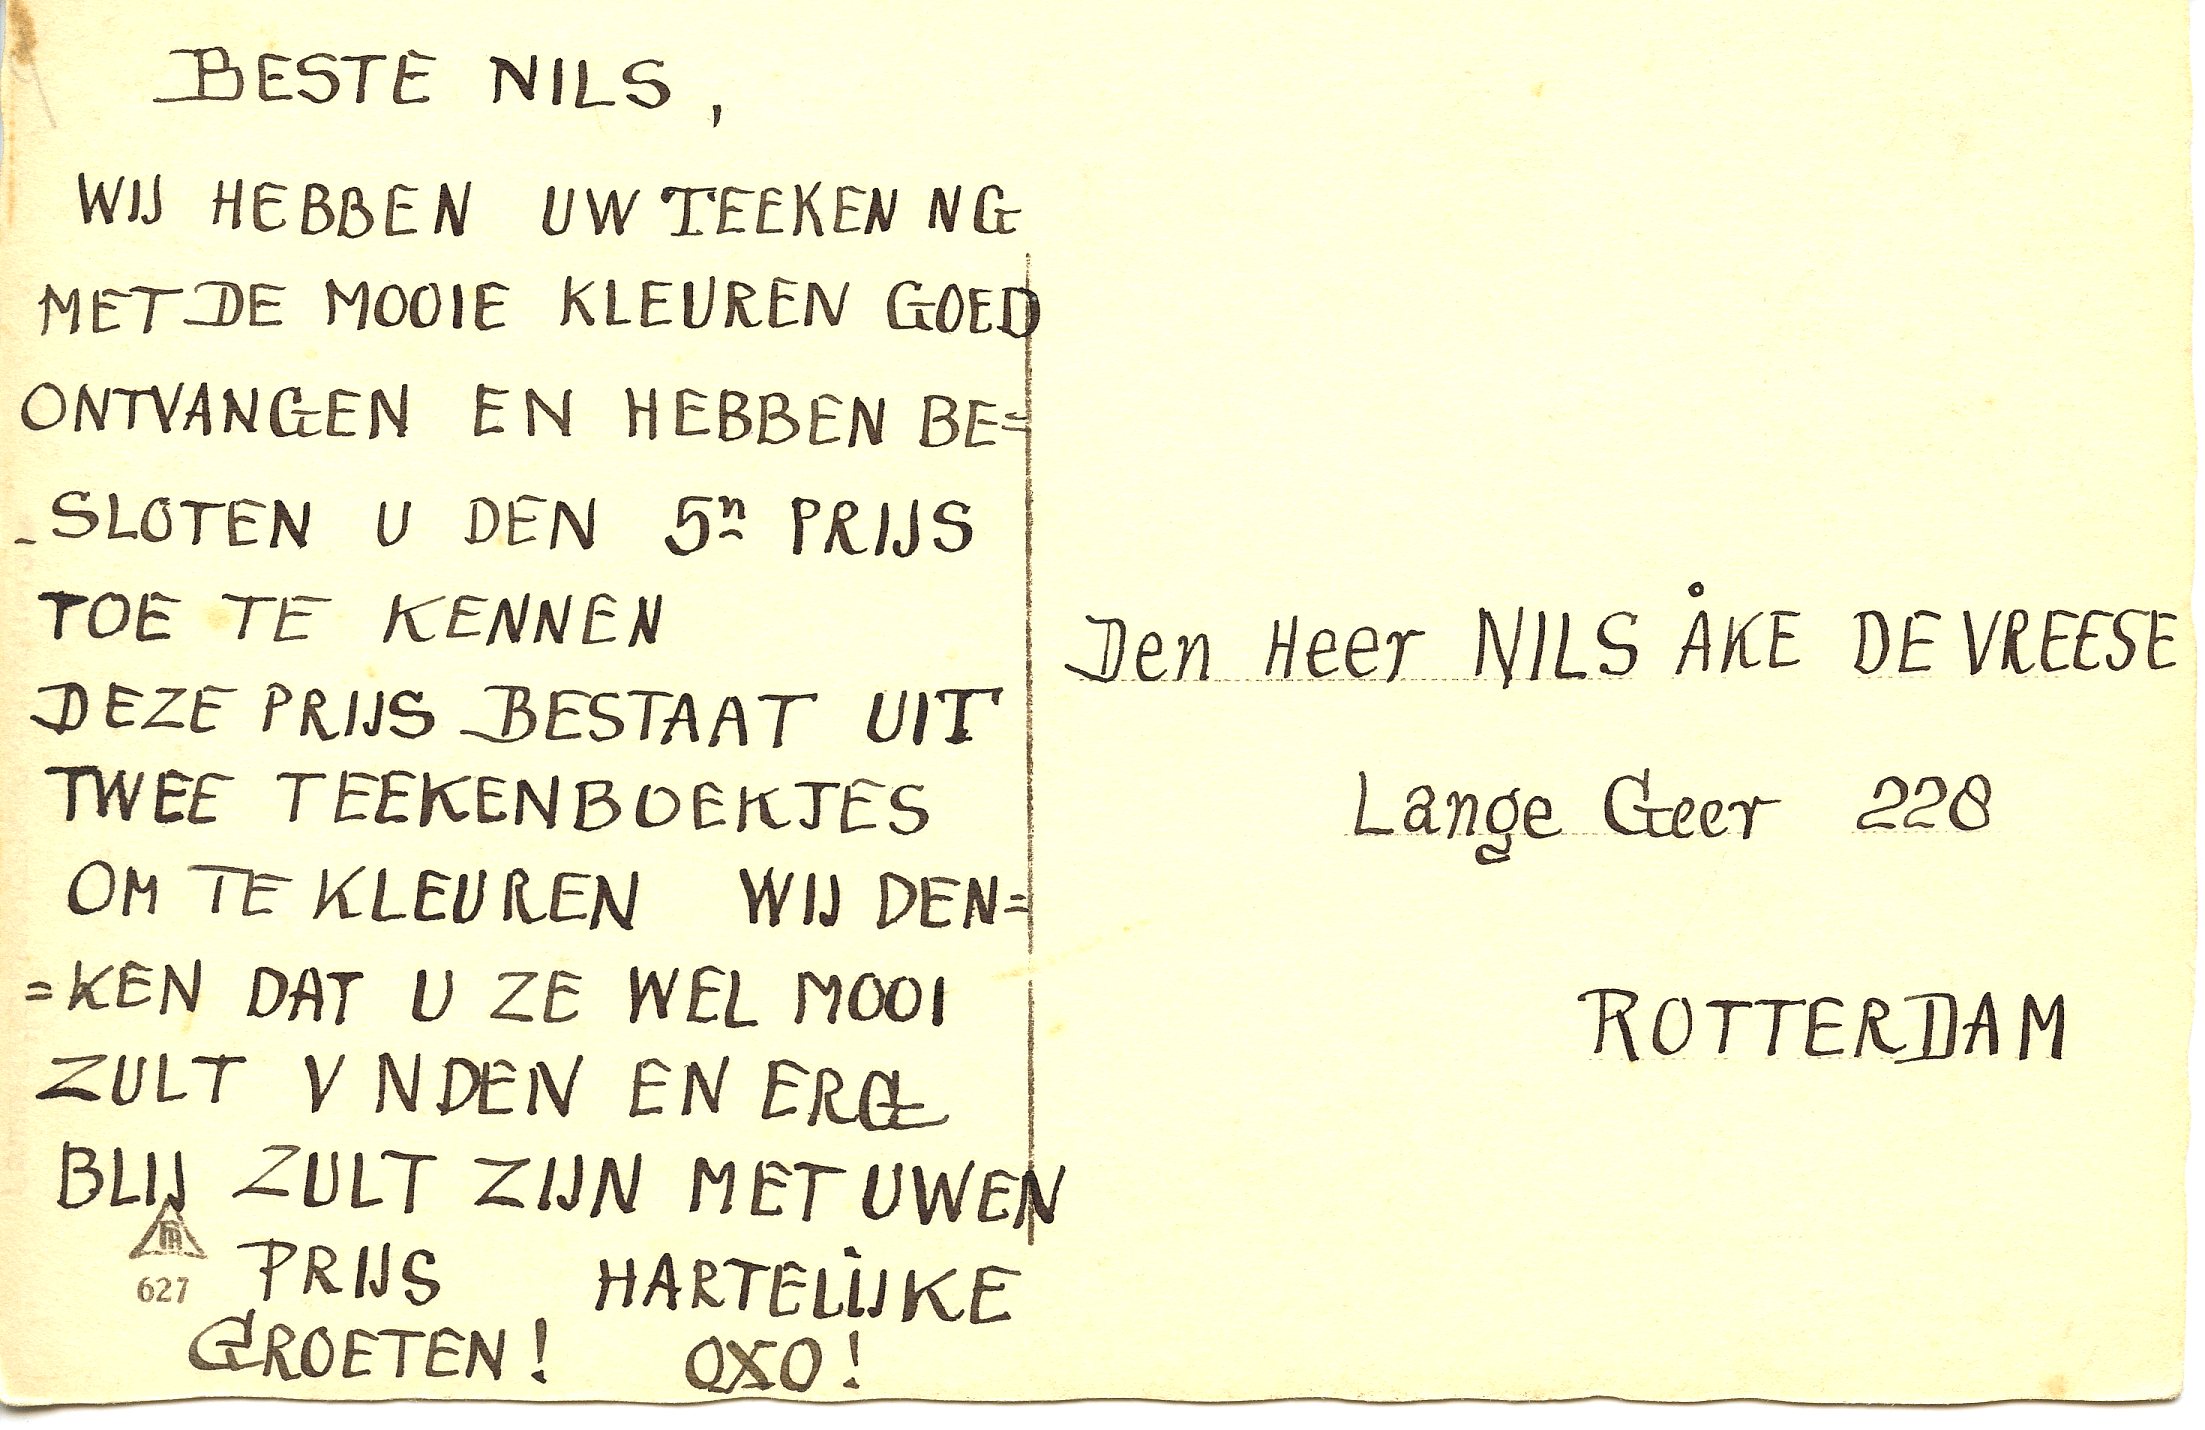 BESTE NILS,
WIJ HEBBEN UW TEEKEN NG
MET DE MOOIE KLEUREN GOED
ONTVANGEN EN HEBBEN BE=
-SLOTEN U DEN 5n PRIJS
TOE TE KENNEN
DEZE PRIJS BESTAAT UIT
TWEE TEEKENBOEKJES
OM TE KLEUREN WIJ DEN=
=KEN DAT U ZE WEL MOOI
ZULT V NDEN EN ERG
BLIJ ZULT ZIJN MET UWEN
PRIJS HARTELIJKE
GROETEN! OXO!
627
Den Heer NILS ÅKE DE VREESE
Lange Geer 228
ROTTERDAM